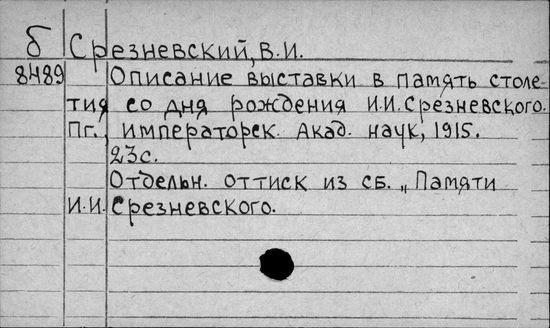 б Срезневский, В.И.
8489 Описание выставки в память столе-
тия со дня рождения И.И.Срезневского.
Пг., императорск. Акад. наук, 1915.
23с.
Отдельн. оттиск из сб. „Памяти
И.И. Срезневского.